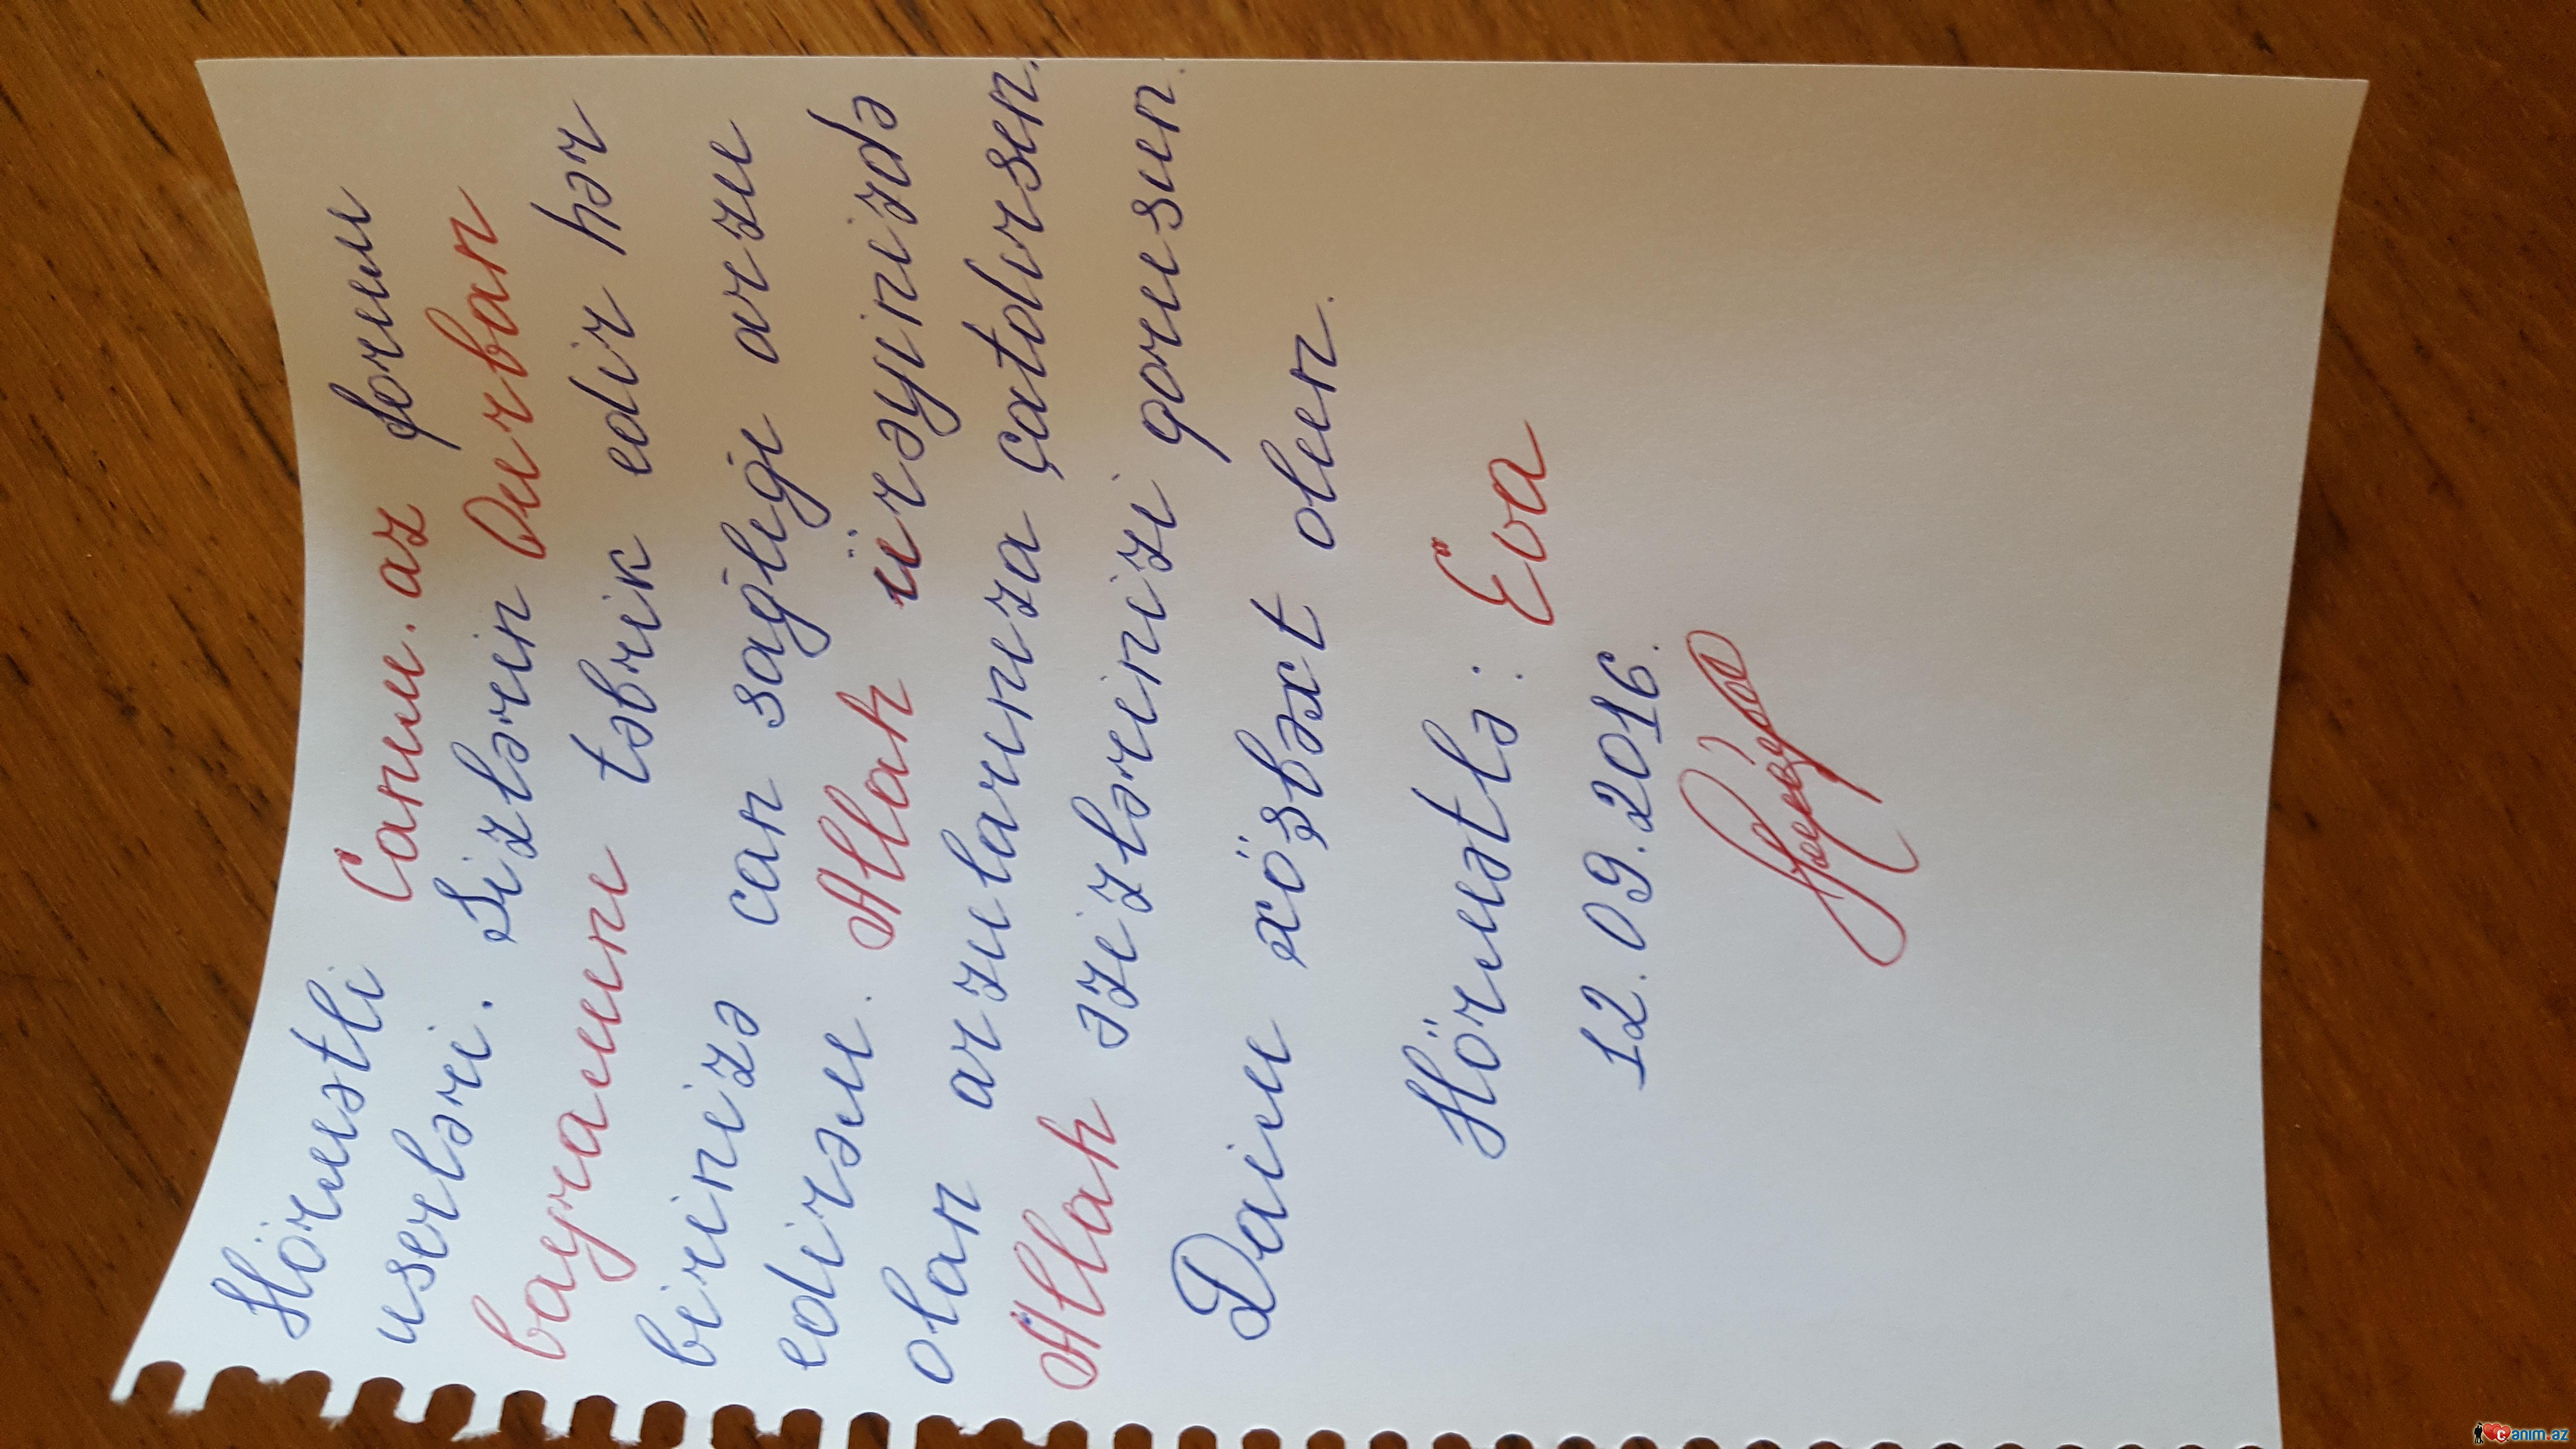 Hörmətli Canım.az forum
userləri. Sizlərin Qurban
bayramını təbrik edir hər
birinizə can sağlığı arzu
edirəm. Allah ürəyinizdə
olan arzularınıza çatdırsın.
Allah əzizlərinizi qorusun.
Daim xöşbəxt olun.
Hörmətlə: Eva
12.09.2016.
canim.az